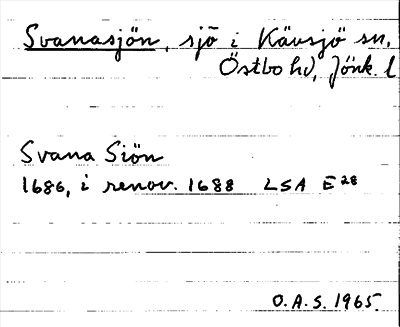 Svanasjön, sjö i Kävsjö sn,
Östbo hd, Jönk. l
Svana Siön
1686, i renov. 1688 LSA E28
O.A.S. 1965.